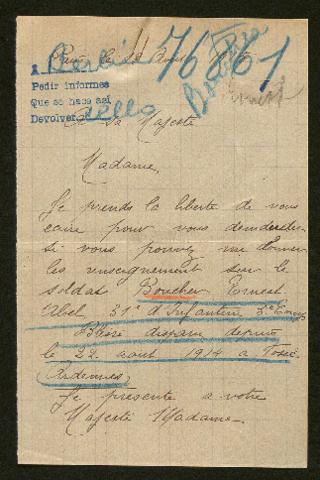 76861
A
Pedir informes
Que se hace así
Devolver
A sa Majesté
Madame,
Je prends la liberté de vous
écrire pour vous demander
si vous pouvez me donner
les renseignement sur le
soldat Boucher Ernest
Abel 31e d'Infanterie
disparu depuis
le 22 août 1914 a
Ardennes
Je présente a votre
Majesté Madame